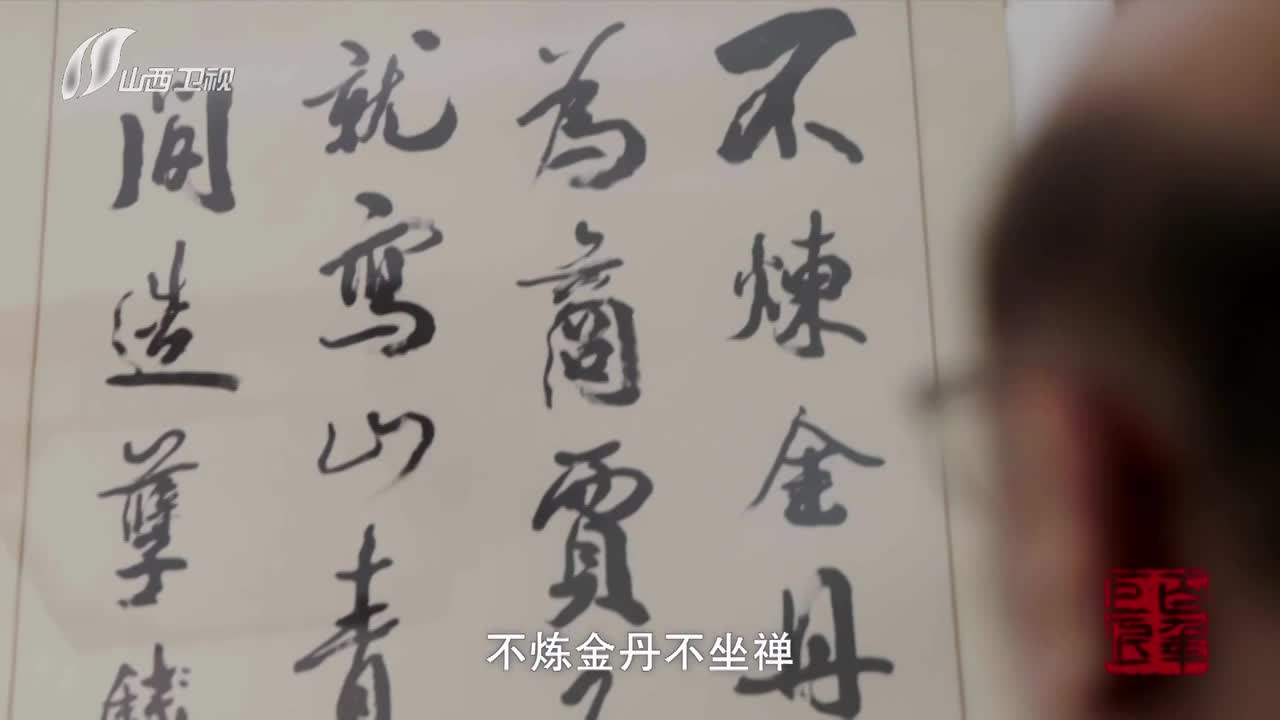 山西卫视
不煉金丹
為商賈
就寫山青
間造孽錢
不炼金丹不坐禅